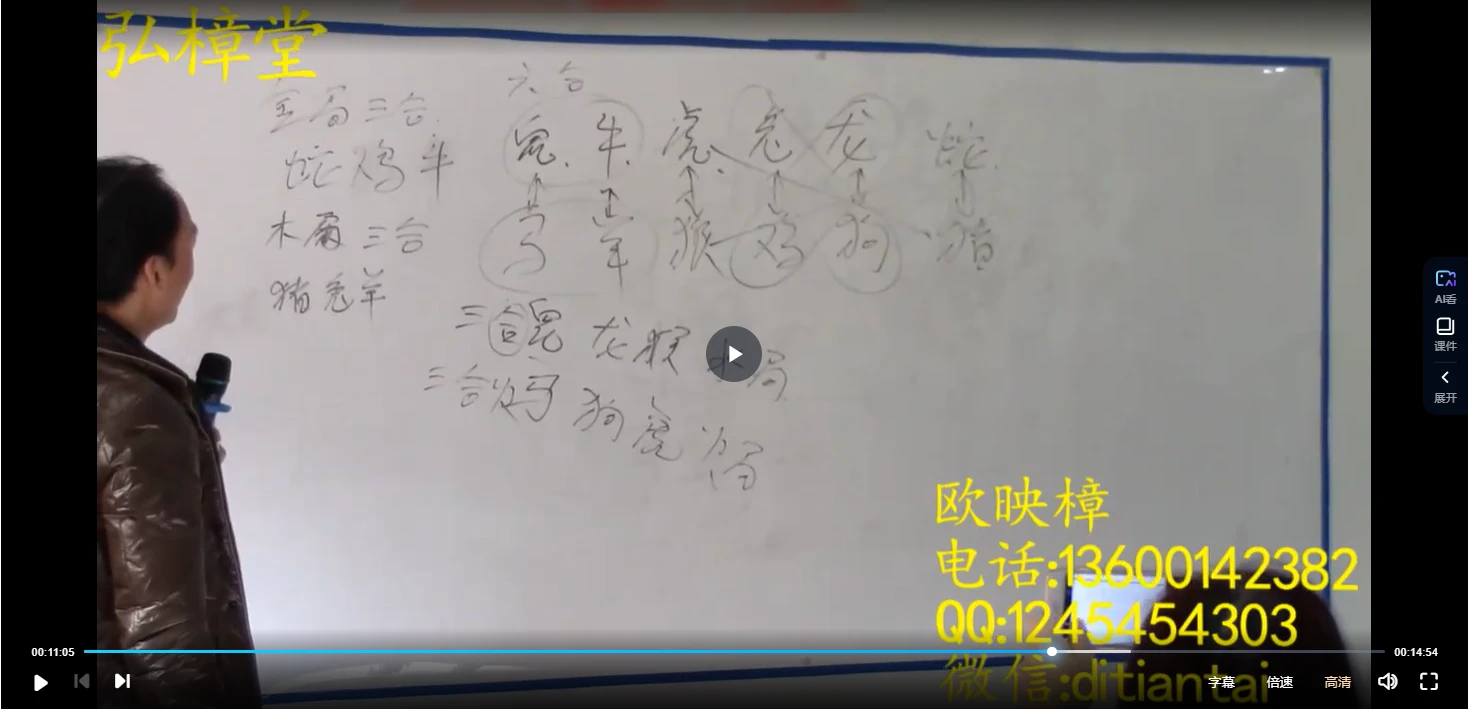 弘樟堂
六合
金局三合
鼠 牛 虎 兔 龙 蛇
蛇鸡牛
马 羊 猴 鸡 狗 猪
木局三合
猪兔羊
三合鼠 龙猴 水局
三合马 狗虎 火局
欧映樟
电话:13600142382
QQ:1245454303
微信:ditiantai
AI看
课件
展开
00:11:05
00:14:54
字幕 倍速 高清